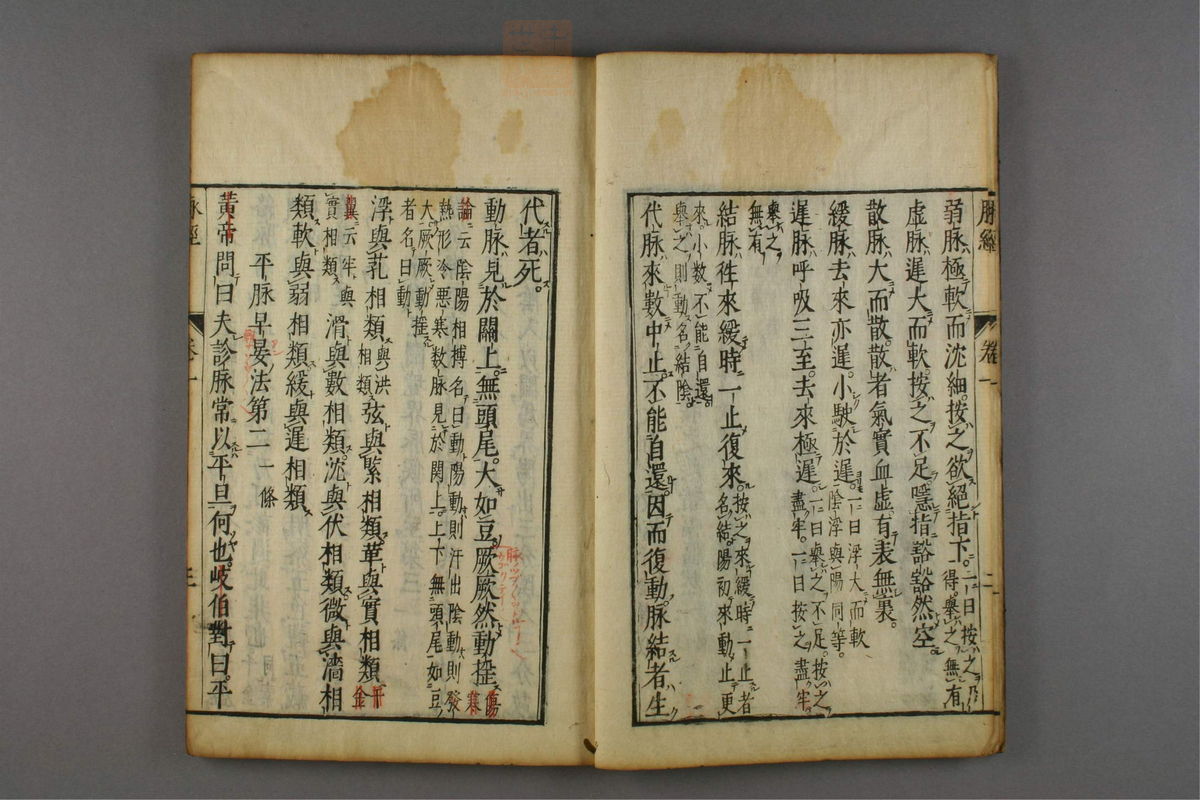 脉經 卷一 二
弱脉極軟而沈細按之欲絕指下一曰按之乃得舉之無有
虛脉遲大而軟按之不足隱指豁豁然空
散脉大而散散者氣實血虛有表無裏
緩脉去來亦遲小駛於遲一曰浮大而軟陰浮與陽同等
遲脉呼吸三至去來極遲一曰舉之不足按之盡牢一曰按之盡牢舉之無有
結脉徃來緩時一止復來按之來緩時一止者名結陽初來動止更來小數不能自還舉之則動名結陰
代脉來數中止不能自還因而復動脉結者生
代者死
動脉見於關上無頭尾大如豆厥厥然動揺傷寒
論云陰陽相搏名曰動陽動則汗出陰動則發熱形冷惡寒數脉見於関上上下無頭尾如豆大厥厥動揺者名曰動
浮與芤相類與洪相類弦與緊相類革與實相類千金
翼云牢與實相類滑與數相類沈與伏相類微與濇相
類軟與弱相類緩與遲相類
平脉早晏法第二 一條
黃帝問曰夫診脉常以平旦何也岐伯對曰平
脉經 卷一 三